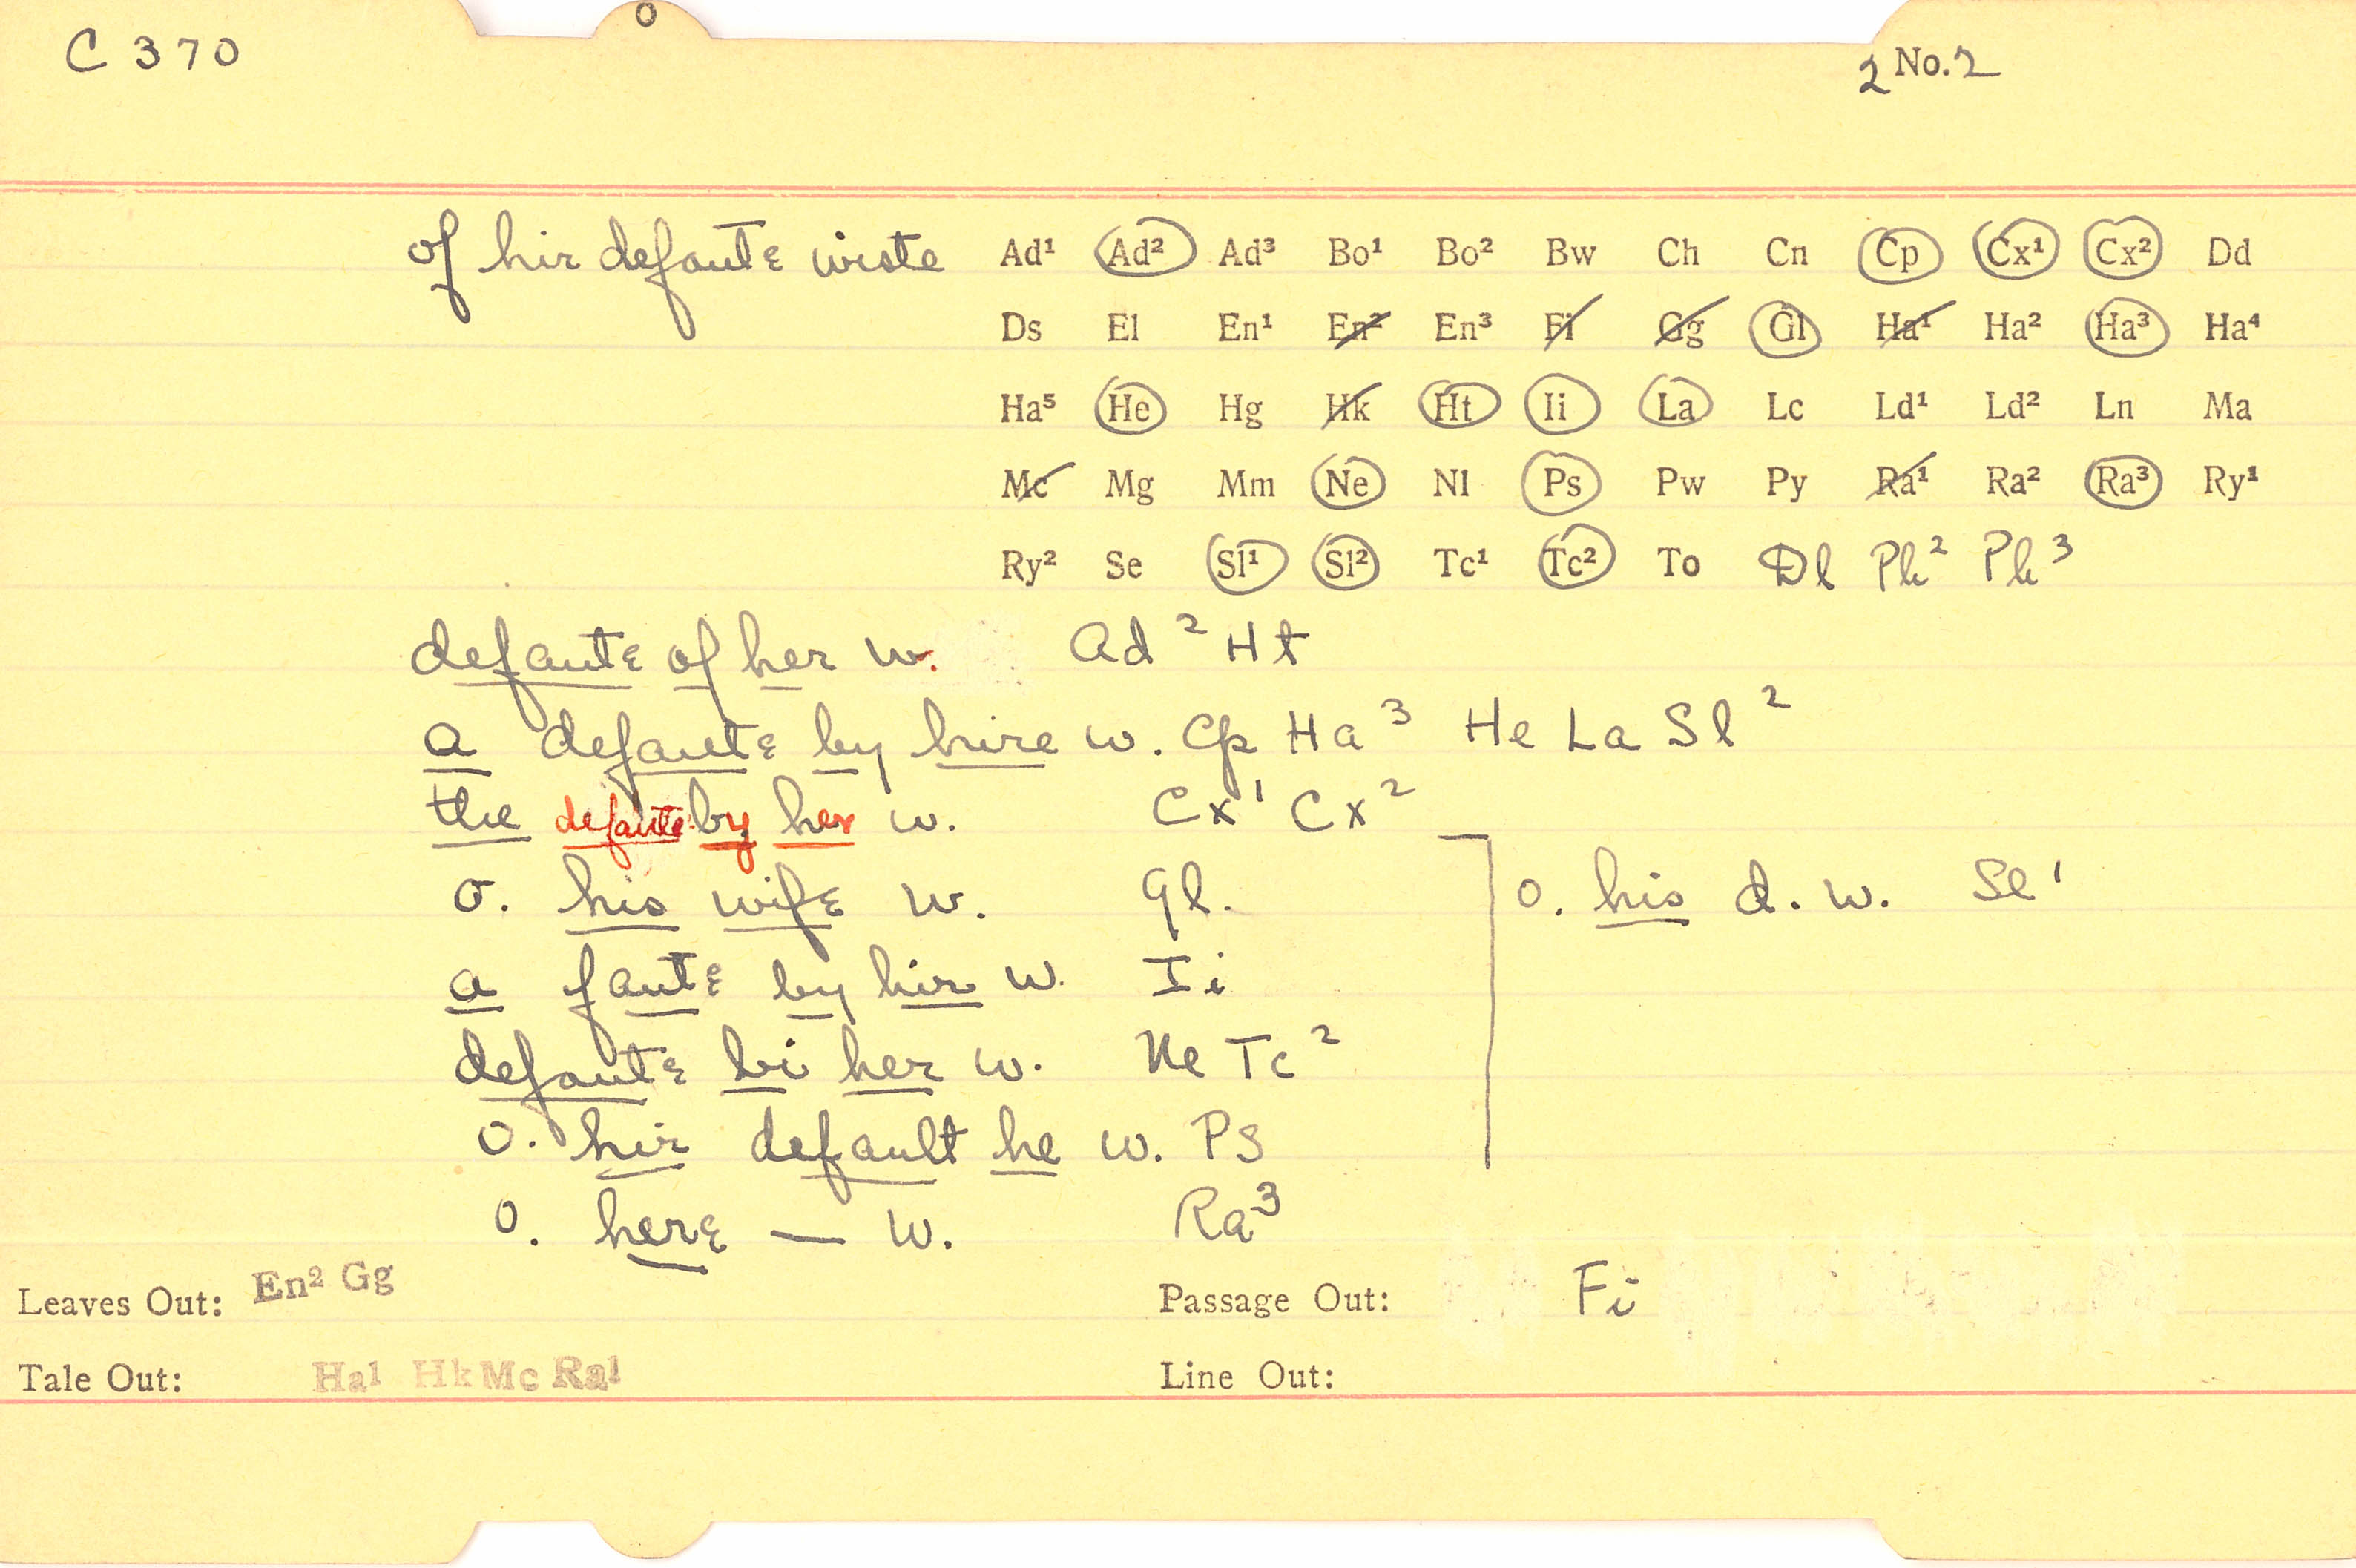 C 370
2 No. 2
of hir defaute wiste Ad¹ Ad² Ad³ Bo¹ Bo² Bw Ch Cn Cp Cx¹ Cx² Dd
Ds El En¹ En² En³ Fi Gg Gl Ha¹ Ha² Ha³ Ha⁴
Ha⁵ He Hg Hk Ht Ii La Lc Ld¹ Ld² Ln Ma
Mc Mg Mm Ne Nl Ps Pw Py Ra¹ Ra² Ra³ Ry¹
Ry² Se Sl¹ Sl² Tc¹ Tc² To Dl Ph² Ph³
defaute of her w. Ad² Ht
a defaute by hire w. Cp Ha³ He La Sl²
the defaute by her w. Cx¹ Cx²
o. his wife w. Gl. o. his d. w. Sl¹
a faute by hir w. Ii
defaute bi her w. Ne Tc²
o. hir default he w. Ps
o. here — w. Ra³
Leaves Out: En² Gg Passage Out: Fi
Tale Out: Ha¹ Hk Mc Ra¹ Line Out: